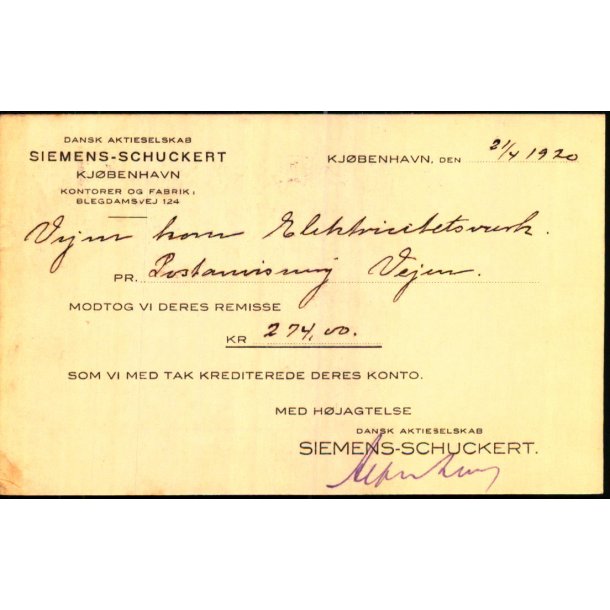 DANSK AKTIESELSKAB
SIEMENS-SCHUCKERT
KJØBENHAVN
KONTORER OG FABRIK:
BLEGDAMSVEJ 124
KJØBENHAVN, DEN 21/4 1920
Vejen kom Elektricitetsværk.
PR. Postanvisning Vejen.
MODTOG VI DERES REMISSE
KR 274,00.
SOM VI MED TAK KREDITEREDE DERES KONTO.
MED HØJAGTELSE
DANSK AKTIESELSKAB
SIEMENS-SCHUCKERT.